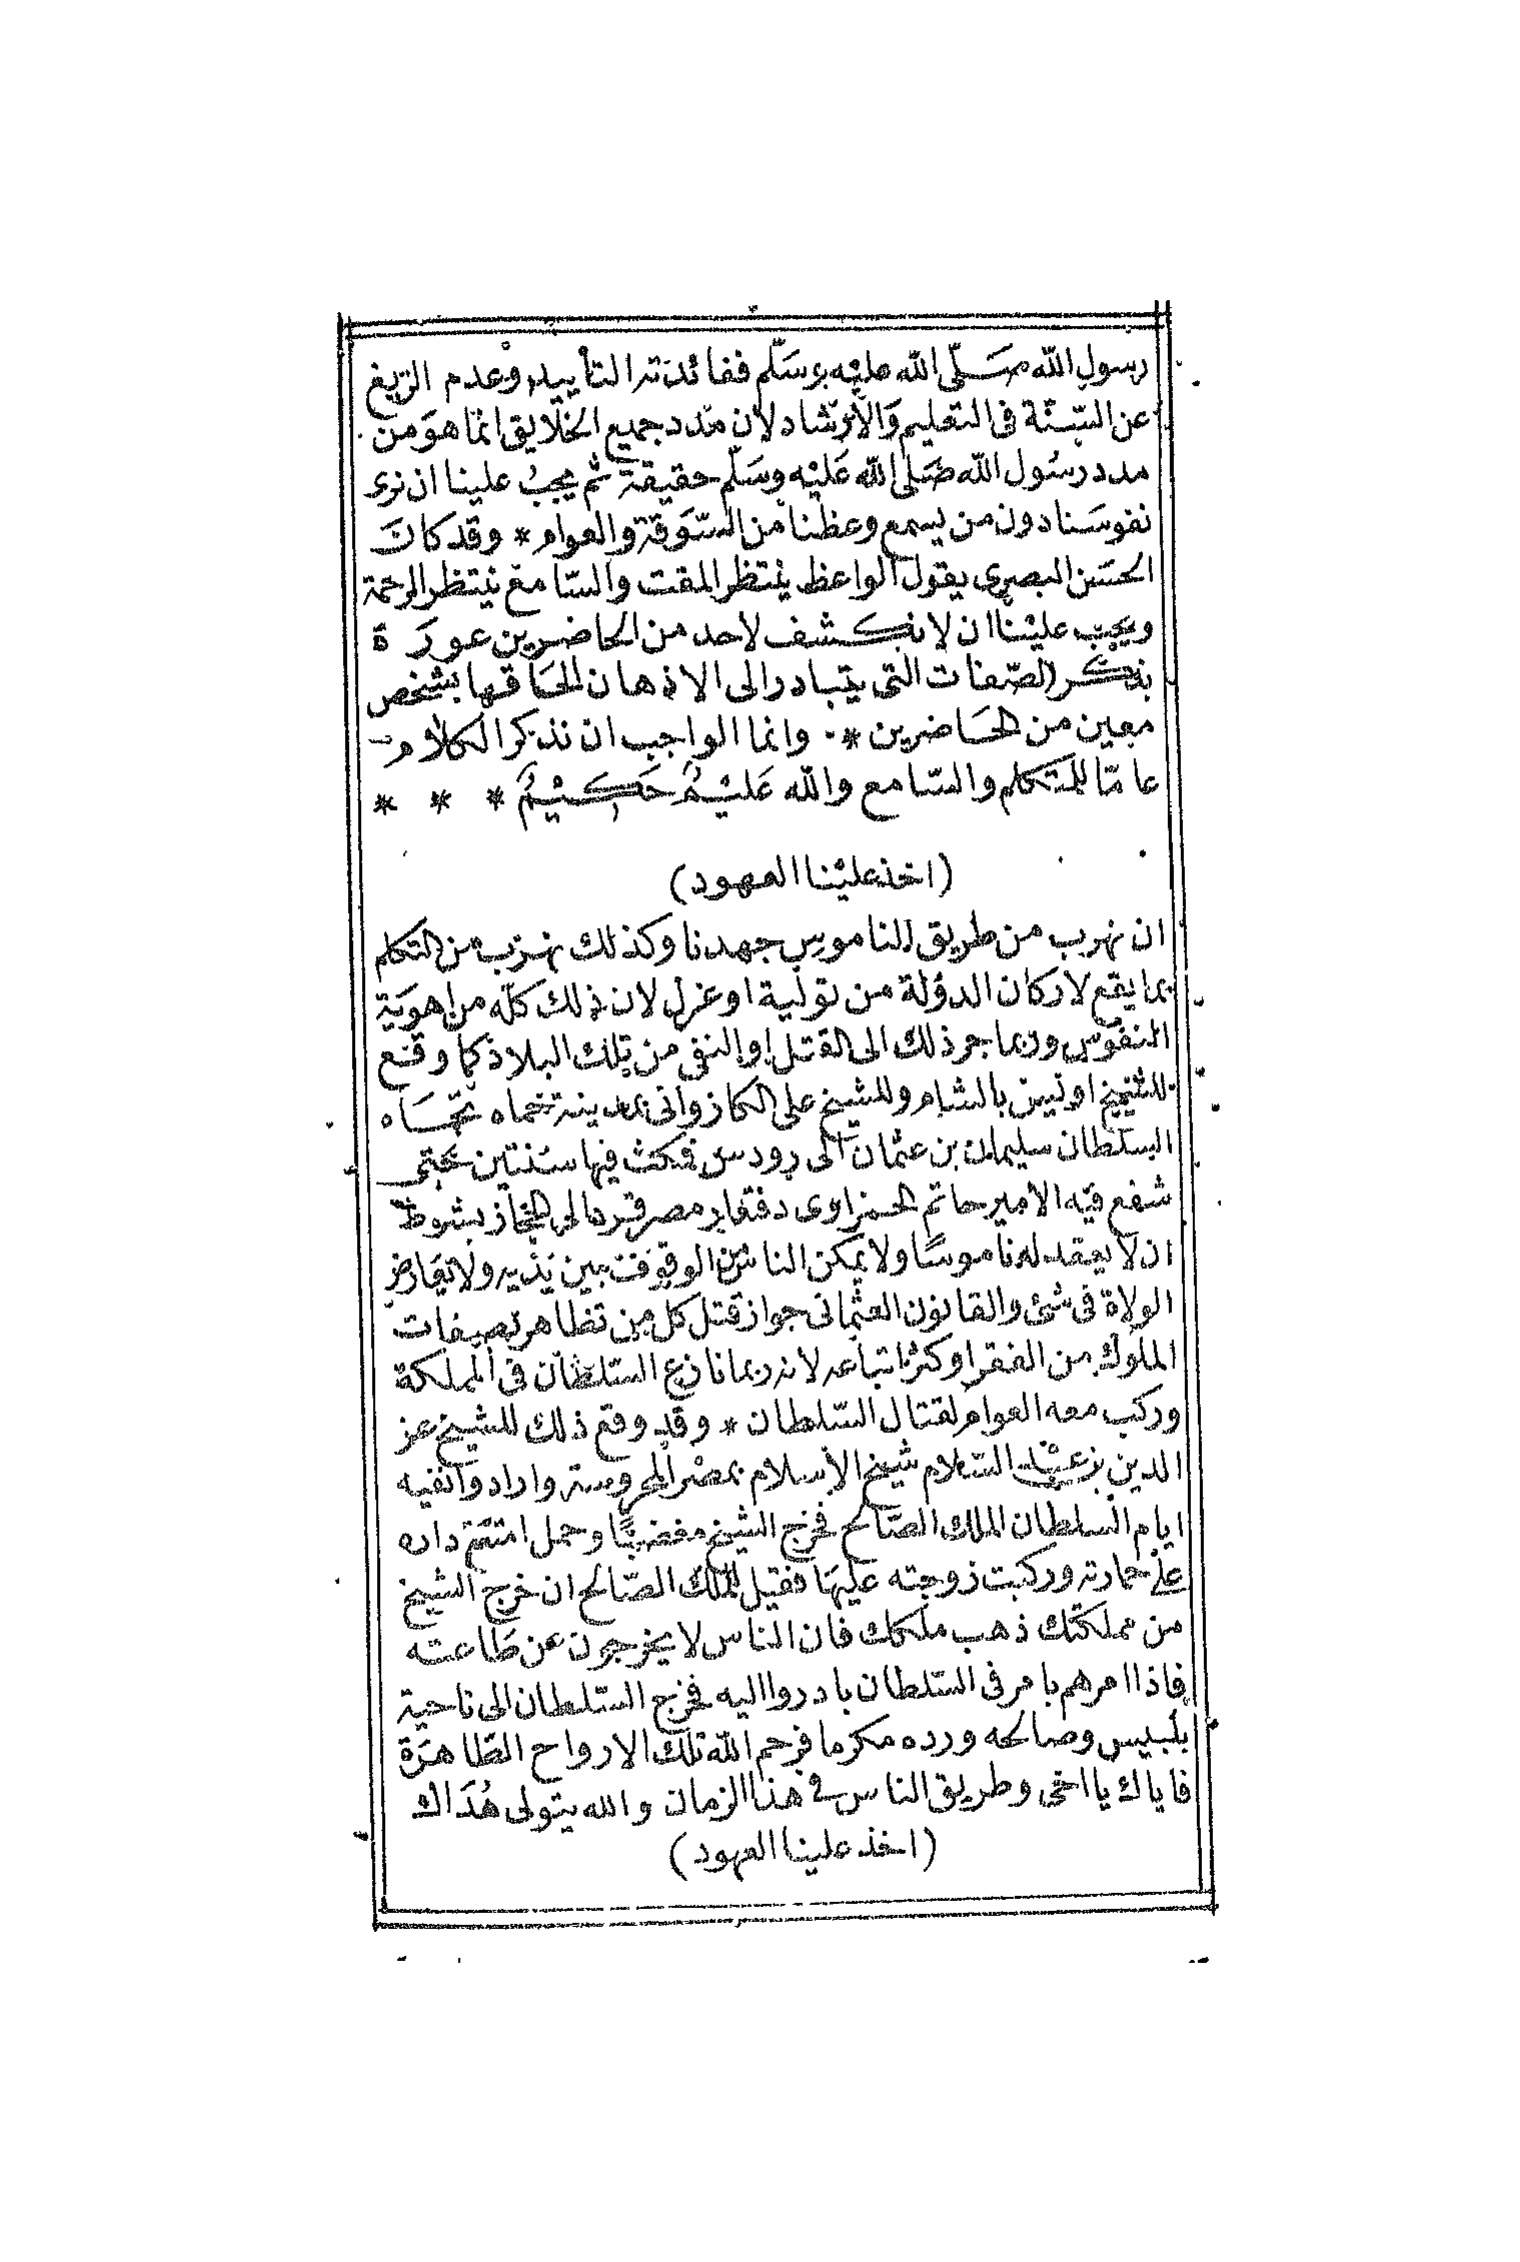 رسول الله صَلّى الله عليْه وسَلّم ففائدته التأييد وعدم الزيغ
عن السّنّة فى التعليم وَالاِرْشاد لان مَدد جميع الخلَايق انّما هوَ من
مدد رسُول الله صَلى الله عَليْه وسَلّم حقيقة ثم يجبُ علينا ان نرى
نفوسَنا دون من يسمع وعظنا من السّوَقة والعوام * وقد كانَ
الحسَن البصرى يقول الواعظ ينتظر المقت والسّامع ينتظر الرحمة
ويجب عليْنا ان لا نكشف لاحد من الحاضرين عورَة
بذكر الصّفات التى يتبادر الى الاذهان الحَاقها بشخص
معين من الحَاضرين * وانما الواجب ان نذكر الكلام
عامّا للمتكلم والسّامع والله عَليْمُ حَكِيْمُ * * *
(اخذ عليْنا العهود)
ان نهرب من طريق الناموس جهدنا وكذلك نهرب من التكلم
بما يقع لاركان الدوْلة من تولية او عزل لان ذلك كلّه من اهوَية
النفوس وربما جر ذلك الى القتل او النفى من تلك البلاد كما وقع
للشيخ اويس بالشام وللشيخ على الكازوانى بمدينة حماه نحّاه
السلطان سليمان بن عثمان الى رودس فمكث فيها سنتين حتى
شفع فيّه الامير حاتم الحمزاوى دفتدار مصر فرده الى الحجاز بشرط
ان لا يعقد له ناموسًا ولا يمكن الناس من الوقوف بين يَدْيه ولا يعَارض
الولاة فى شئ والقانون العثمانى جواز قتل كل من تظاهر بصفات
الملوك من الفقرا وكثر اتباعه لانه ربما نازع السّلطان فى المملكة
وركب معه العوام لقتال السّلطان * وقد وقع ذلك للشيخ عز
الدين بن عبْد السّلام شيخ الاسلام بمصْر المحروسة وارادوا نفيه
ايام السلطان الملك الصّالح فخرج الشيخ مغضبًا وحمل امتعة داره
على حمارته وركبت زوجته عليهَا فقيل للملك الصّالح ان خرج الشيخ
من مملكتك ذهب ملكك فان الناس لا يخرجون عن طَاعته
فاذا امرهم بامر فى السّلطان بادروا اليه فخرج السّلطان الى ناحية
بلبيس وصالحه ورده مكرما فرحم الله تلك الارواح الطّاهرَة
فاياك يا اخى وطريق الناس فى هذا الزمان والله يتولى هُدَاك
(اخذ علينا العهود)